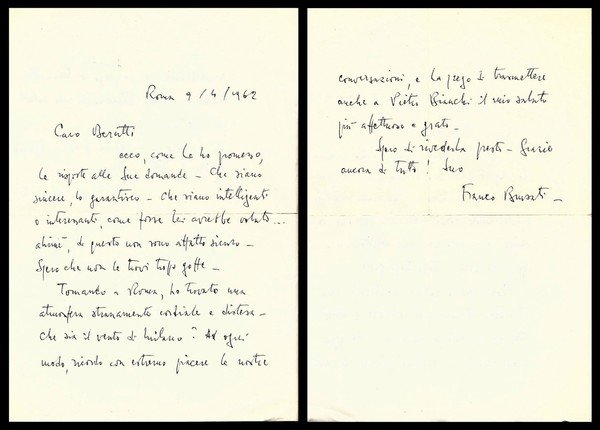 Roma 9/4/1962
Caro Berutti
ecco, come Le ho promesso,
le risposte alle Sue domande - Che siano
sincere, lo garantisco - Che siano intelligenti
o interessanti, come forse Lei avrebbe voluto...
ahimè, di questo non sono affatto sicuro -
Spero che non le trovi troppo goffe -
Tornando a Roma, ho trovato una
atmosfera stranamente cordiale e distesa -
Che sia il vento di Milano? Ad ogni
modo, ricordo con estremo piacere le nostre
conversazioni, e La prego di trasmettere
anche a Pietro Bianchi il mio saluto
più affettuoso e grato -
Spero di rivederLa presto - Grazie
ancora di tutto! Suo
Franco Brusati -